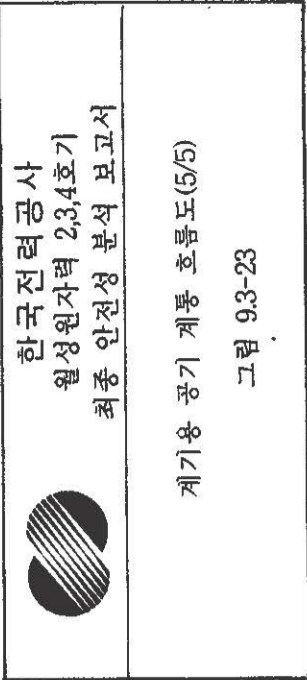 한국전력공사
월성원자력 2,3,4호기
최종 안전성 분석 보고서
계기용 공기 계통 흐름도(5/5)
그림 9.3-23